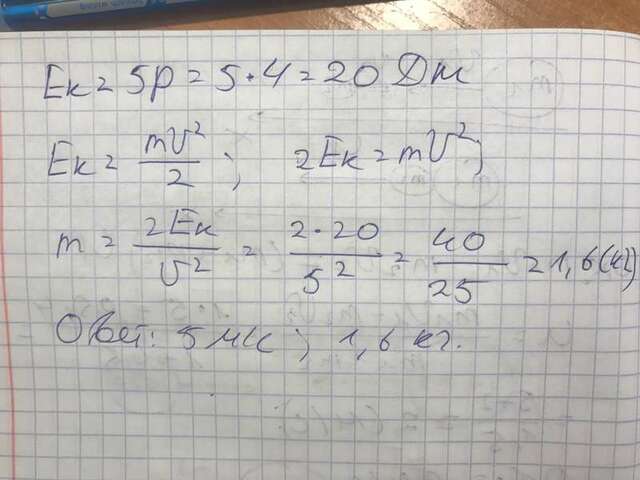 Eк = 5p = 5·4 = 20 Дж
Eк = mV²/2 ; 2Eк = mV²;
m = 2Eк/V² = 2·20/5² = 40/25 = 1,6 (кг)
Ответ: 5 м/с ; 1,6 кг.